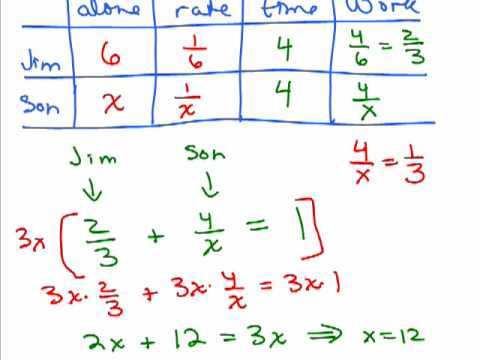 alone rate time work
Jim 6 1/6 4 4/6 = 2/3
Son x 1/x 4 4/x
Jim Son
4/x = 1/3
3x [ 2/3 + 4/x = 1 ]
3x · 2/3 + 3x · 4/x = 3x · 1
2x + 12 = 3x ⇒ x = 12